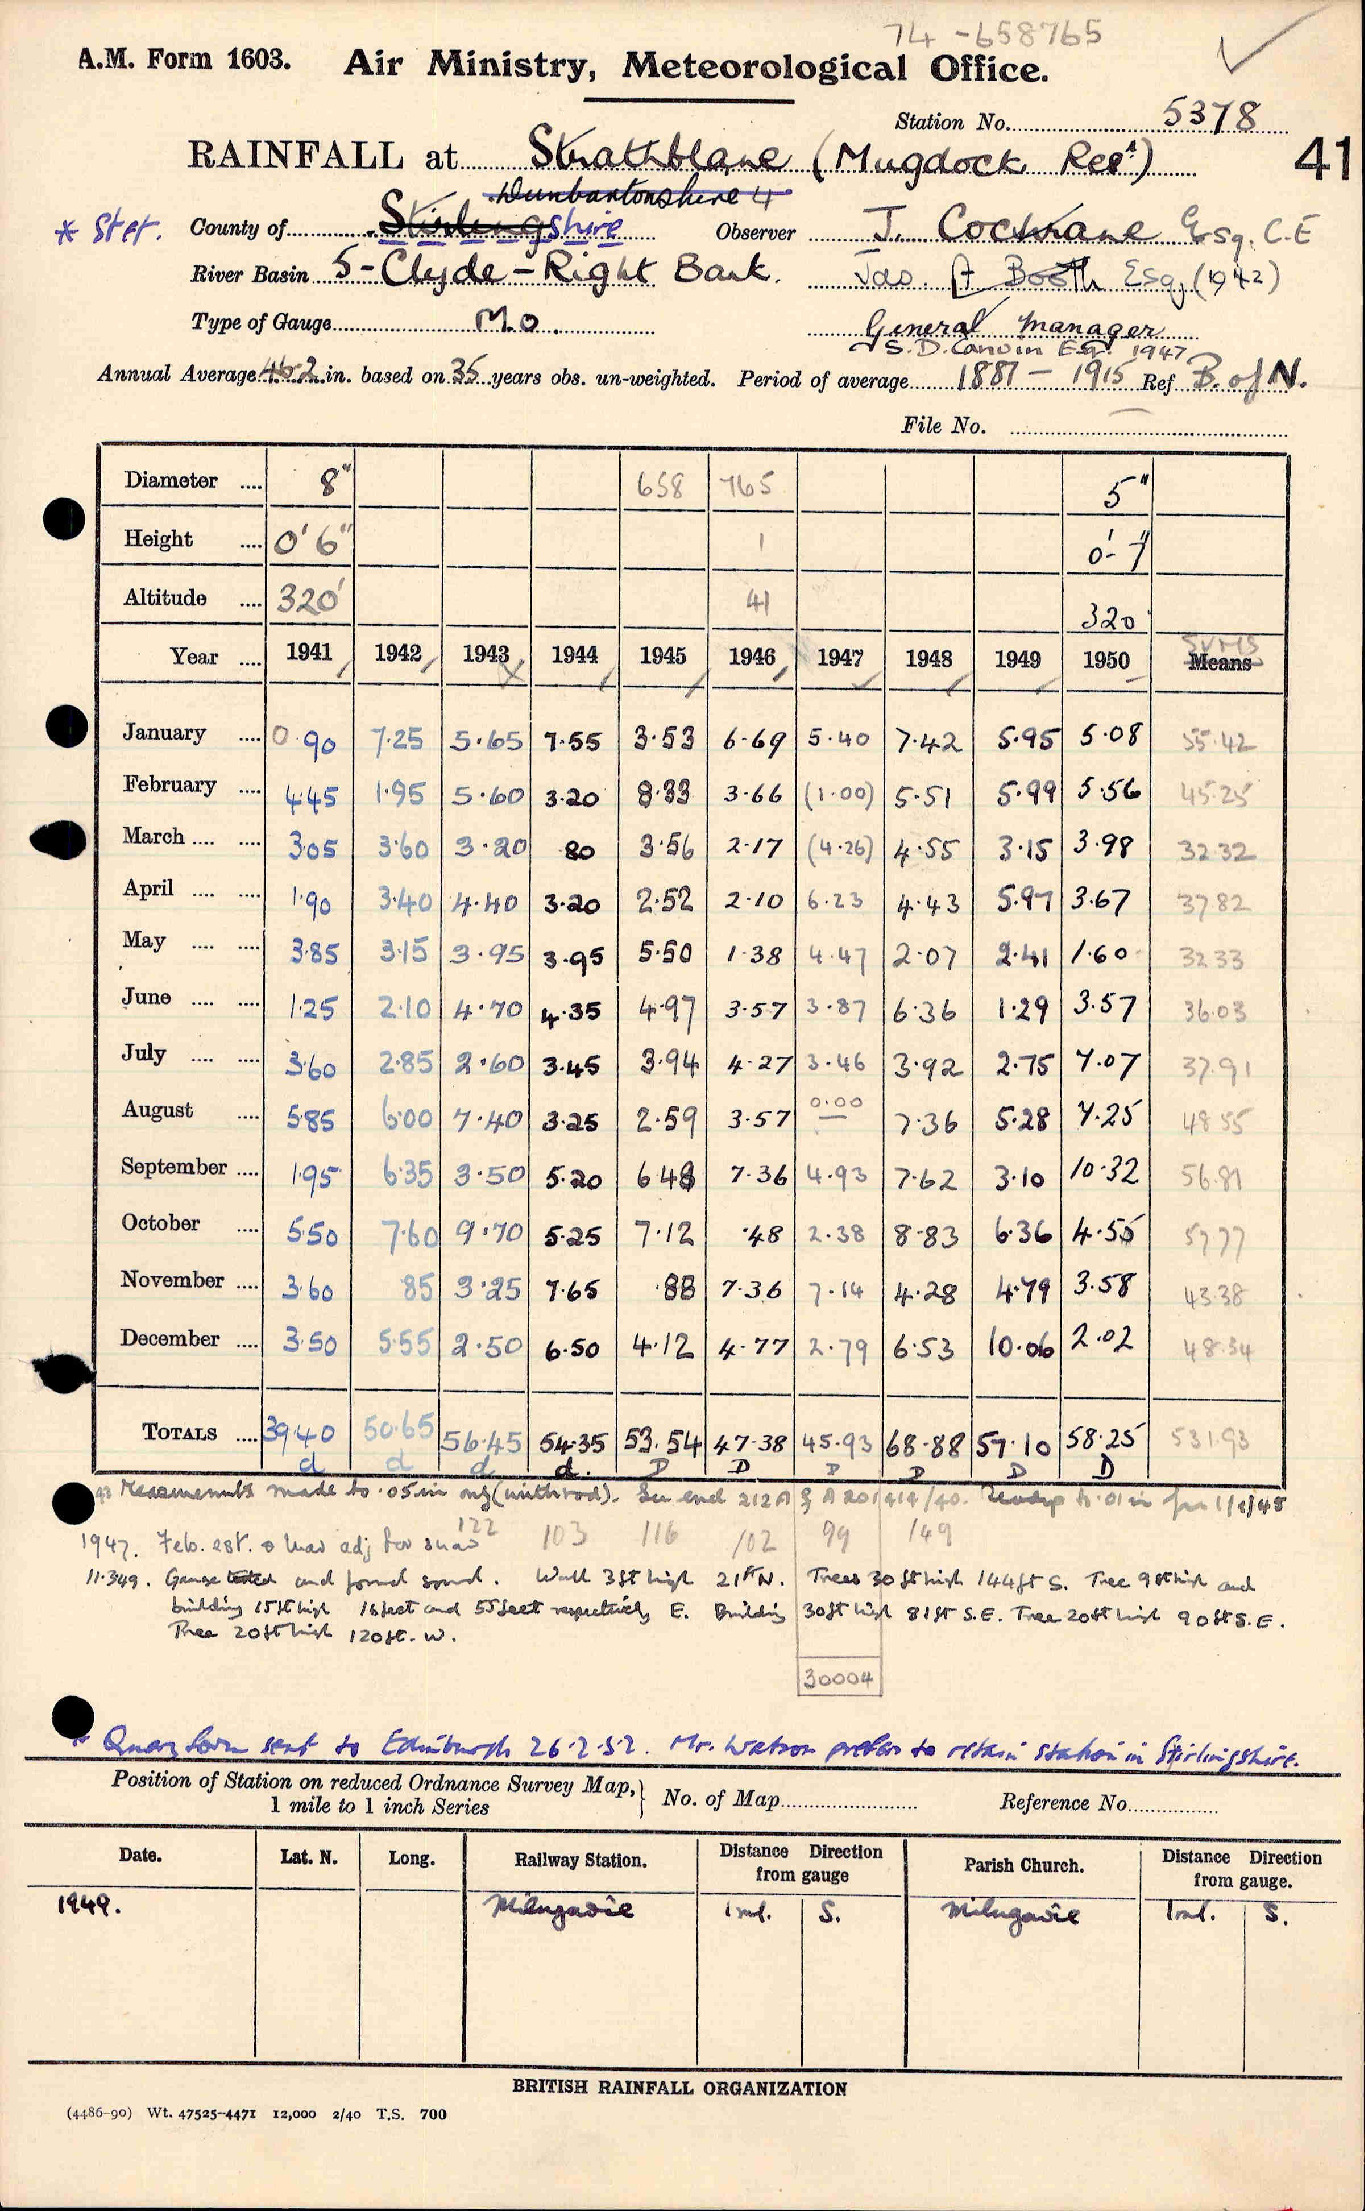 74 -658765
A.M. Form 1603. Air Ministry, Meteorological Office.
Station No. 5378
41
RAINFALL at Strathblane (Mugdock Resr)
Dunbartonshire 4
* Stet. County of Stirlingshire Observer J. Cochrane Esq. C.E
River Basin 5-Clyde-Right Bank. Jas. A Booth Esq (1942)
Type of Gauge M.O. General Manager
S. D. Canvin Esq. 1947
Annual Average 46.2 in. based on 35 years obs. un-weighted. Period of average 1881-1915 Ref B. of N.
File No.
Diameter 8" 658 765 5"
Height 0' 6" 1 0'-7"
Altitude 320' 41 320
SUMS
Year 1941 1942 1943 1944 1945 1946 1947 1948 1949 1950 Means
January 0.90 7.25 5.65 7.55 3.53 6.69 5.40 7.42 5.95 5.08 55.42
February 4.45 1.95 5.60 3.20 8.33 3.66 (1.00) 5.51 5.99 5.56 45.25
March 3.05 3.60 3.20 80 3.56 2.17 (4.26) 4.55 3.15 3.98 32.32
April 1.90 3.40 4.40 3.20 2.52 2.10 6.23 4.43 5.97 3.67 37.82
May 3.85 3.15 3.95 3.95 5.50 1.38 4.47 2.07 2.41 1.60 32.33
June 1.25 2.10 4.70 4.35 4.97 3.57 3.87 6.36 1.29 3.57 36.03
July 3.60 2.85 2.60 3.45 3.94 4.27 3.46 3.92 2.75 7.07 37.91
August 5.85 6.00 7.40 3.25 2.59 3.57 0.00 7.36 5.28 7.25 48.55
September 1.95 6.35 3.50 5.20 6.48 7.36 4.93 7.62 3.10 10.32 56.81
October 5.50 7.60 9.70 5.25 7.12 .48 2.38 8.83 6.36 4.55 57.77
November 3.60 85 3.25 7.65 .88 7.36 7.14 4.28 4.79 3.58 43.38
December 3.50 5.55 2.50 6.50 4.12 4.77 2.79 6.53 10.06 2.02 48.34
TOTALS 39.40 50.65 56.45 54.35 53.54 47.38 45.93 68.88 57.10 58.25 531.93
d d d d. D D D D D D
Measurements made to .05 in only (with rod). See end 212A & A201414/40. Readings to .01 in from 1/1/45
122 103 116 102 99 149
1947. Feb. est. & Mar adj for snow
11.3.49. Gauge tested and found sound. Wall 3ft high 21ft N. Trees 30ft high 144ft S. Tree 9ft high and
building 15ft high 16feet and 55feet respectively E. Building 30ft high 81ft S.E. Tree 20ft high 90ft S.E.
Tree 20ft high 120ft. W.
30004
* Query form sent to Edinburgh 26.2.52. Mr. Watson prefers to retain station in Stirlingshire.
Position of Station on reduced Ordnance Survey Map, 1 mile to 1 inch Series } No. of Map Reference No.
Date. Lat. N. Long. Railway Station. Distance Direction from gauge Parish Church. Distance Direction from gauge.
1949. Milngavie 1ml. S. Milngavie 1ml. S.
BRITISH RAINFALL ORGANIZATION
(4486-90) Wt. 47525-4471 12,000 2/40 T.S. 700